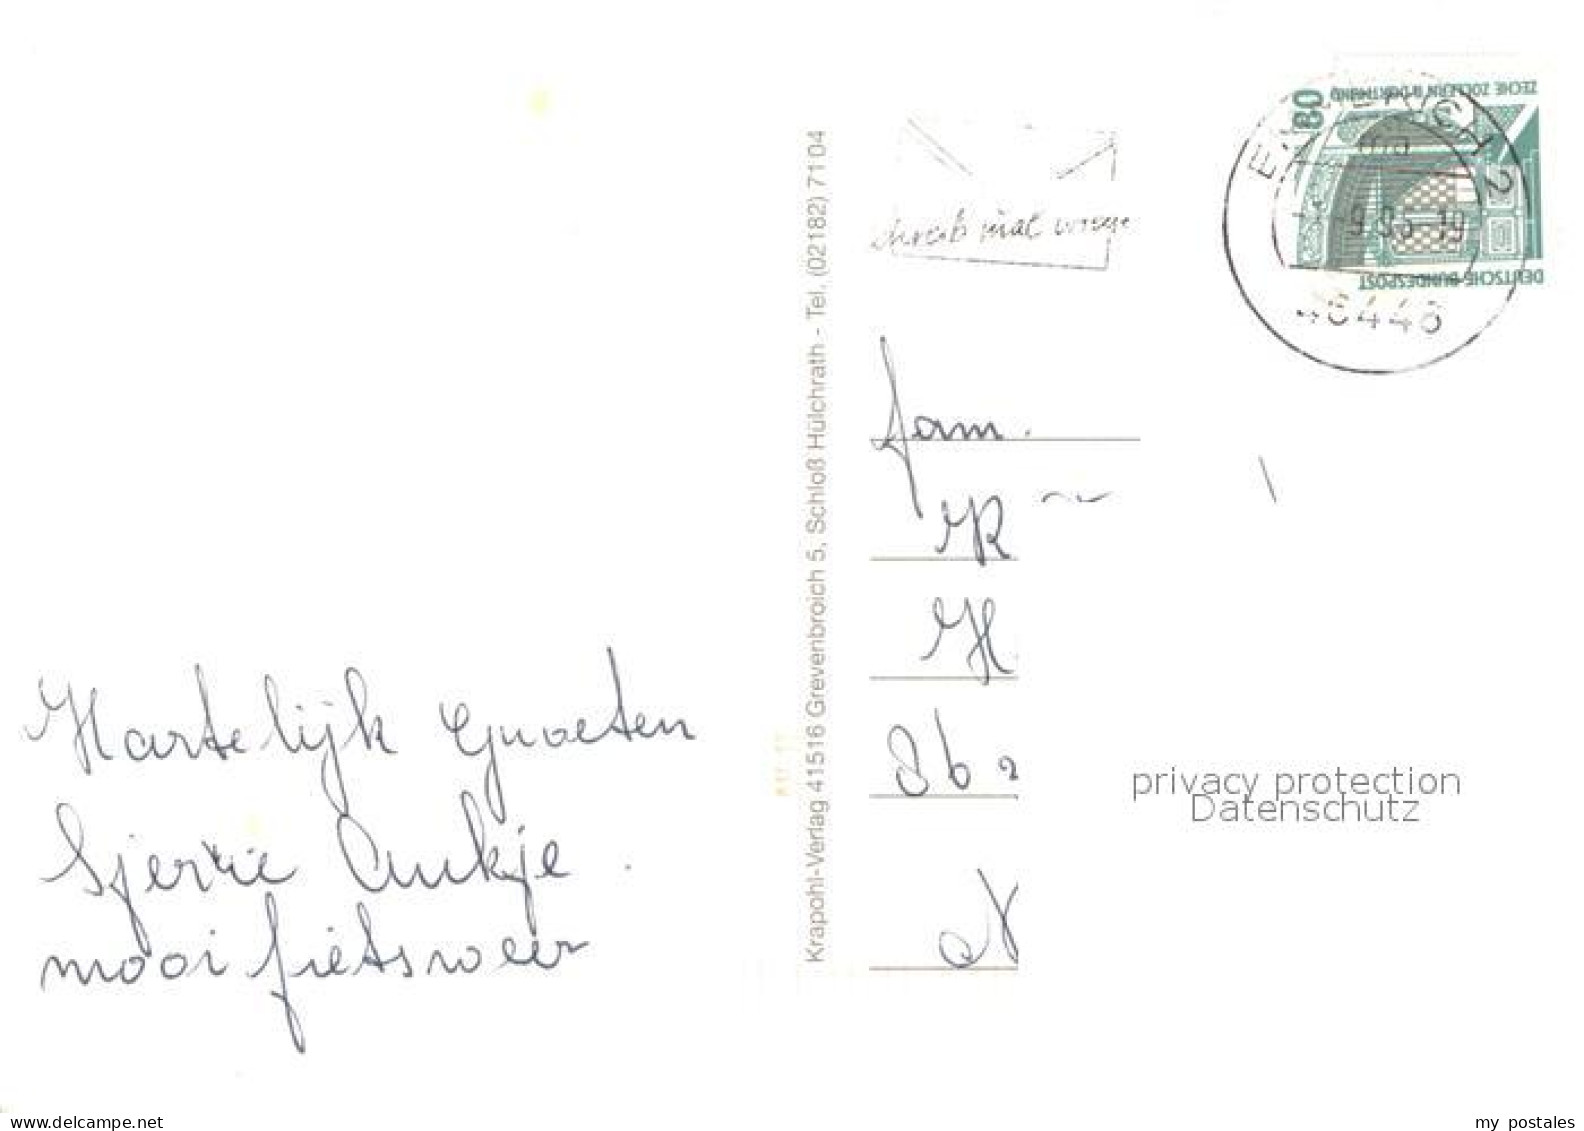 Hartelijk Groeten
Sjerrie Aukje.
mooi fietsweer
Krapohl-Verlag 41516 Grevenbroich 5, Schloß Hülchrath - Tel. (02182) 71 04
schreib mal wieder
80
ZECHE ZOLLERN II DORTMUND
DEUTSCHE BUNDESPOST
EMMERICH 2
ma
9.95-19
46446
fam.
K
H
862
N
privacy protection
Datenschutz
www.delcampe.net
my postales